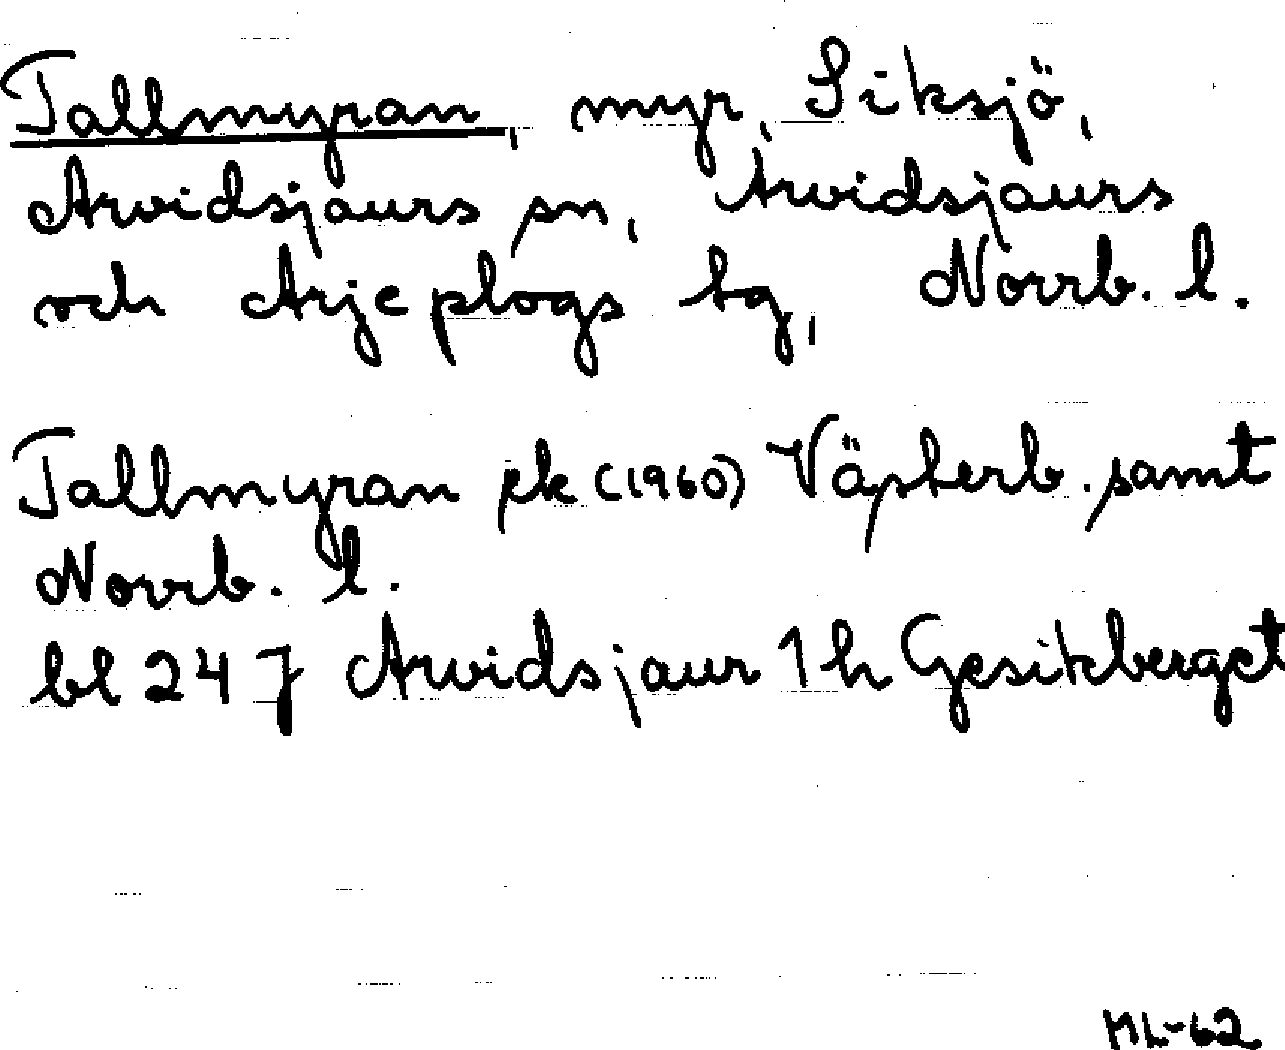 Tallmyran, myr, Siksjö,
Arvidsjaurs sn, Arvidsjaurs
och Arjeplogs tg, Norrb. l.
Tallmyran ek (1960) Västerb. samt
Norrb. l.
bl 24 7 Arvidsjaur 1 h Gesikberget
ML-62